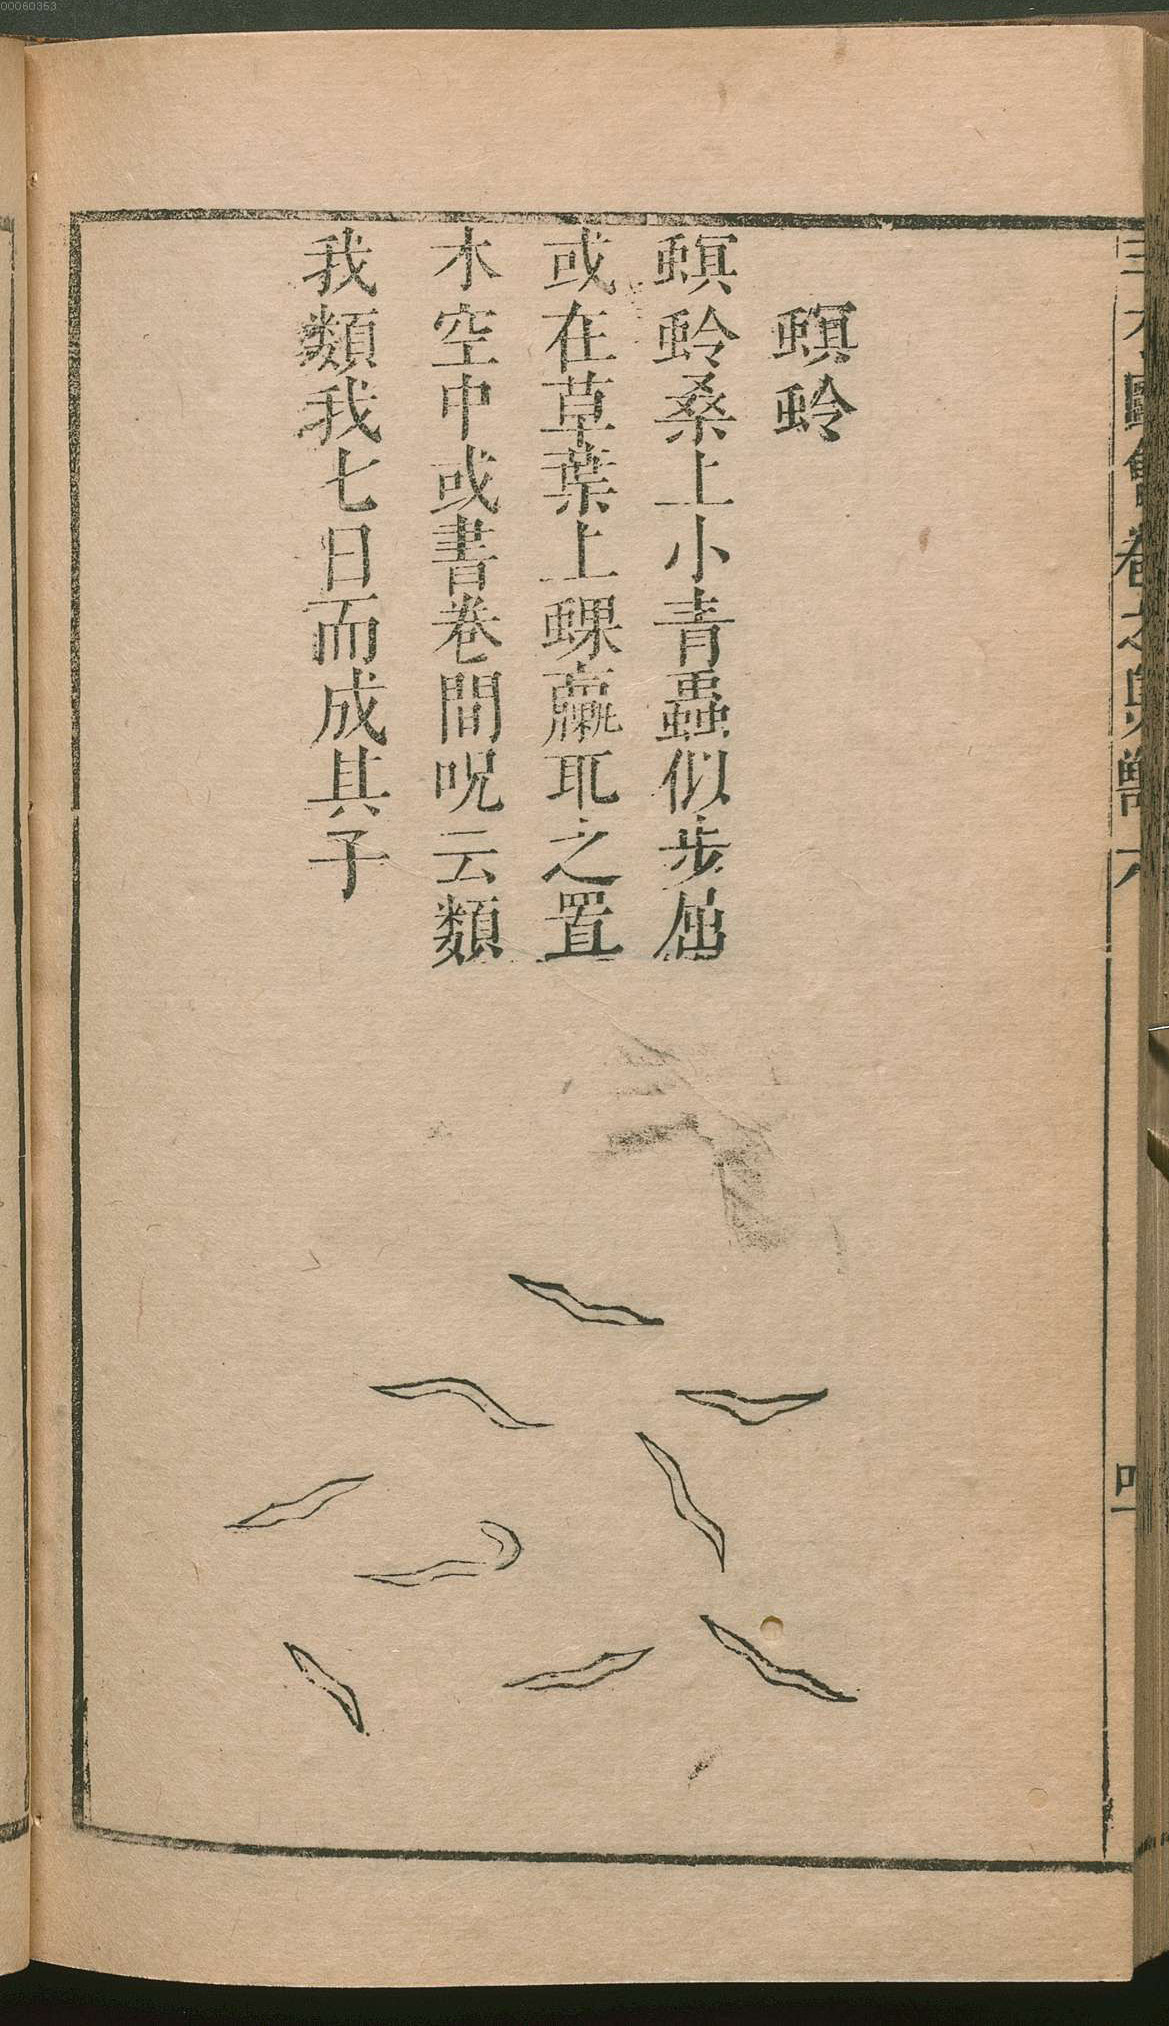 三才圖會卷之鳥獸六
螟蛉
螟蛉桑上小青蟲似步屈
或在草葉上蜾蠃取之置
木空中或書卷間呪云類
我類我七日而成其子
00060353